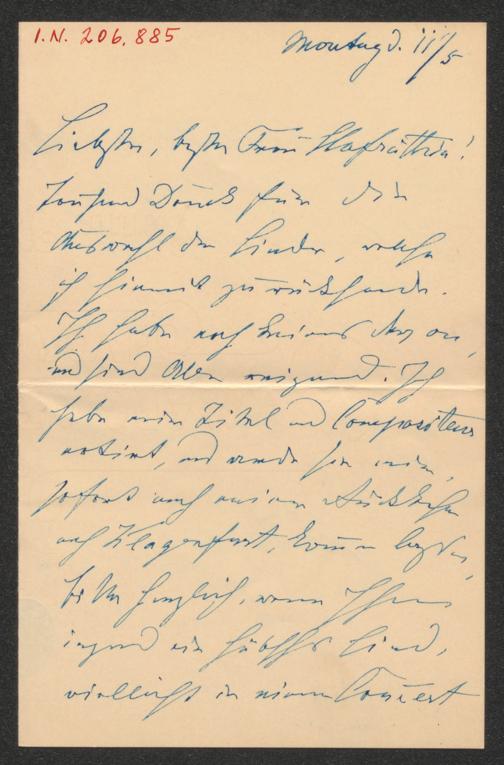 I.N. 206.885
Montag d. 11/5
Liebste, beste Frau Hofräthin!
Tausend Dank für die
Auswahl der Lieder, welche
ich hiemit zurücksende.
Ich habe noch keines davon,
und sind Alle reizend. Ich
habe mir Titel und Compositeur
notirt, und werde sie mir,
sofort nach meiner Rückkehr
nach Klagenfurt, kommen lassen,
bitte herzlich, wenn Ihnen
irgend ein hübsches Lied,
vielleicht in einem Concert